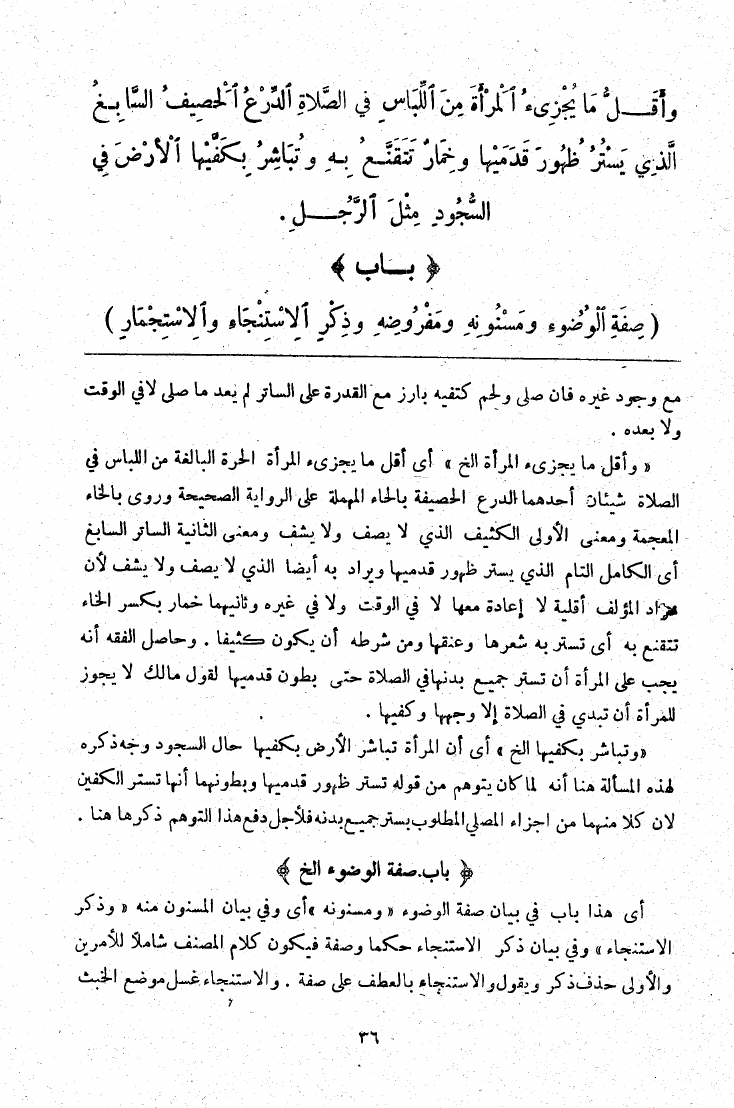 وأَقَـــلُّ مَا يُجْزِىءُ ٱلْمَرْأَةَ مِنَ ٱللِّبَاسِ فِي الصَّلَاةِ الدِّرْعُ ٱلْحَصِيفُ السَّابِـغُ
الَّذِي يَسْتُرُ ظُهُورَ قَدَمَيْهَا وخِمَارٌ تَتَقَنَّـعُ بِـهِ وتُبَاشِرُ بِكَفَّيْهَا ٱلْأَرْضَ فِي
السُّجُودِ مِثْلَ ٱلرَّجُـــلِ .
﴿ بـــاب ﴾
( صِفَةِ ٱلْوُضُوءِ ومَسْنُونِهِ ومَفْرُوضِهِ وذِكْرِ ٱلِاسْتِنْجَاءِ وٱلِاسْتِجْمَارِ )
مع وجود غيره فان صلى ولحم كتفيه بارز مع القدرة على الساتر لم يعد ما صلى لافي الوقت
ولا بعده .
« وأقل ما يجزىء المرأة الخ » أى أقل ما يجزىء المرأة الحرة البالغة من اللباس في
الصلاة شيئان أحدهما الدرع الحصيفة بالحاء المهملة على الرواية الصحيحة وروى بالخاء
المعجمة ومعنى الأولى الكثيف الذي لا يصف ولا يشف ومعنى الثانية الساتر السابغ
أى الكامل التام الذي يستر ظهور قدميها ويراد به أيضا الذي لا يصف ولا يشف لأن
مراد المؤلف أقلية لا إعادة معها لا في الوقت ولا في غيره وثانيهما خمار بكسر الخاء
تتقنع به أى تستر به شعرها وعنقها ومن شرطه أن يكون كثيفا . وحاصل الفقه أنه
يجب على المرأة أن تستر جميع بدنها في الصلاة حتى بطون قدميها لقول مالك لا يجوز
للمرأة أن تبدي في الصلاة إلا وجهها وكفيها .
«وتباشر بكفيها الخ » أى أن المرأة تباشر الأرض بكفيها حال السجود وجه ذكره
لهذه المسألة هنا أنه لما كان يتوهم من قوله تستر ظهور قدميها وبطونهما أنها تستر الكفين
لان كلا منهما من اجزاء المصلي المطلوب بستر جميع بدنه فلأجل دفع هذا التوهم ذكرها هنا .
﴿ باب.صفة الوضوء الخ ﴾
أى هذا باب في بيان صفة الوضوء « ومسنونه »أى وفي بيان المسنون منه « وذكر
الاستنجاء » وفي بيان ذكر الاستنجاء حكما وصفة فيكون كلام المصنف شاملاً للأمرين
والأولى حذف ذكر ويقول والاستنجاء بالعطف على صفة . والاستنجاء غسل موضع الخبث
٣٦